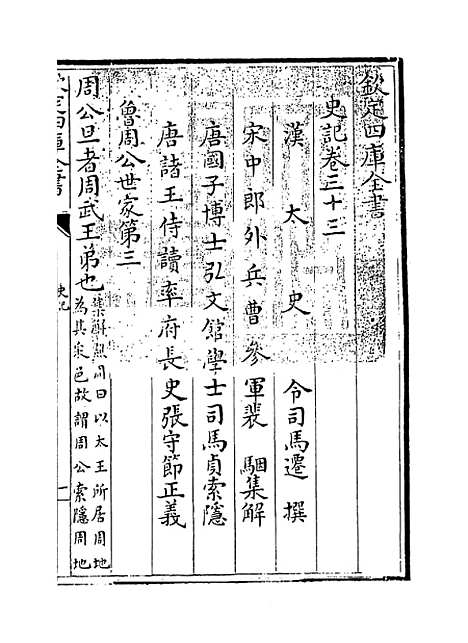 欽定四庫全書
史記卷三十三
漢太史令司馬遷撰
宋中郎外兵曹參軍裴駰集解
唐國子博士弘文館學士司馬貞索隱
唐諸王侍讀率府長史張守節正義
魯周公世家第三
周公旦者周武王弟也集解譙周曰以太王所居周地
為其采邑故謂周公索隱周地
欽定四庫全書
史記
一